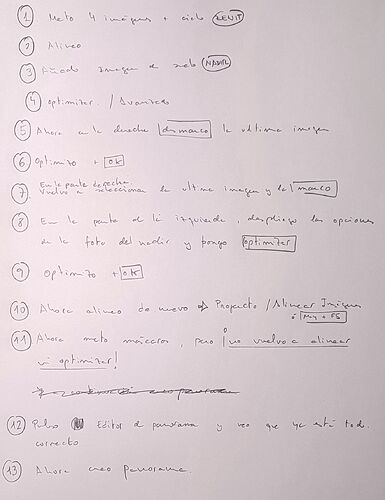 1 Meto 4 imágenes + cielo ZENIT
2 Alineo
3 Añado imagen de suelo NADIR
4 optimizar / Avanzado
5 Ahora en la derecha desmarco la ultima imagen
6 optimizo + OK
7 En la parte derecha
vuelvo a seleccionar la ultima imagen y la marco
8 En la parte de la izquierda, despliego las opciones
de la foto del nadir y pongo optimizar
9 optimizo + OK
10 Ahora alineo de nuevo Proyecto / Alinear Imágenes
ó May + F5
11 Ahora meto máscaras, pero ¡no vuelvo a alinear
ni optimizar!
12 Pulso Editor de panorama y veo que ya está todo
correcto
13 Ahora creo panorama.